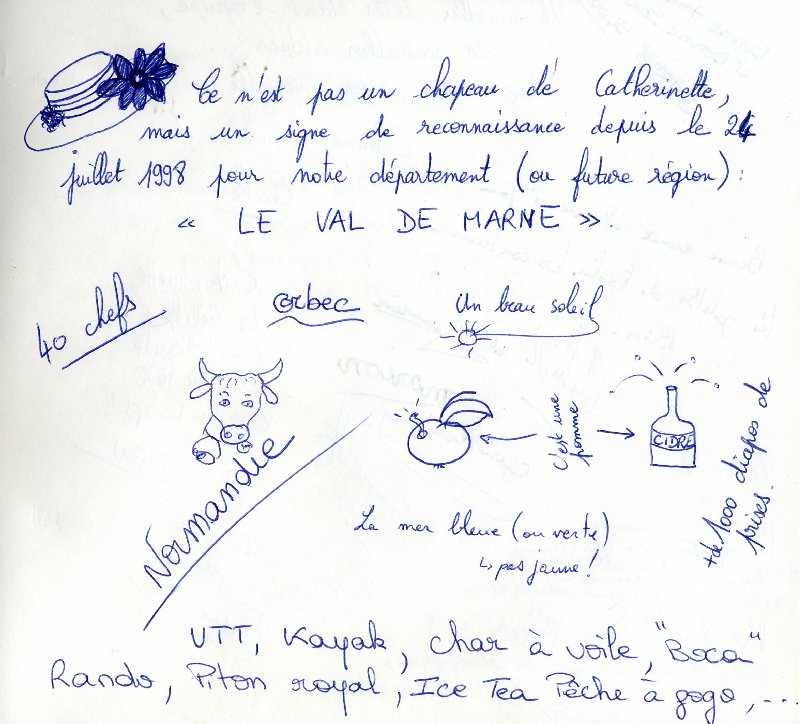 Ce n'est pas un chapeau de Catherinette,
mais un signe de reconnaissance depuis le 24
juillet 1998 pour notre département (ou future région) :
« LE VAL DE MARNE ».
40 chefs
Orbec
Un beau soleil
C'est une
pomme
CIDRE
+ de 1000 diapos de
prises.
Normandie
La mer bleue (ou verte)
↳ pas jaune !
VTT, Kayak, char à voile, "Boca"
Rando, Piton royal, Ice Tea Pêche à gogo, ...